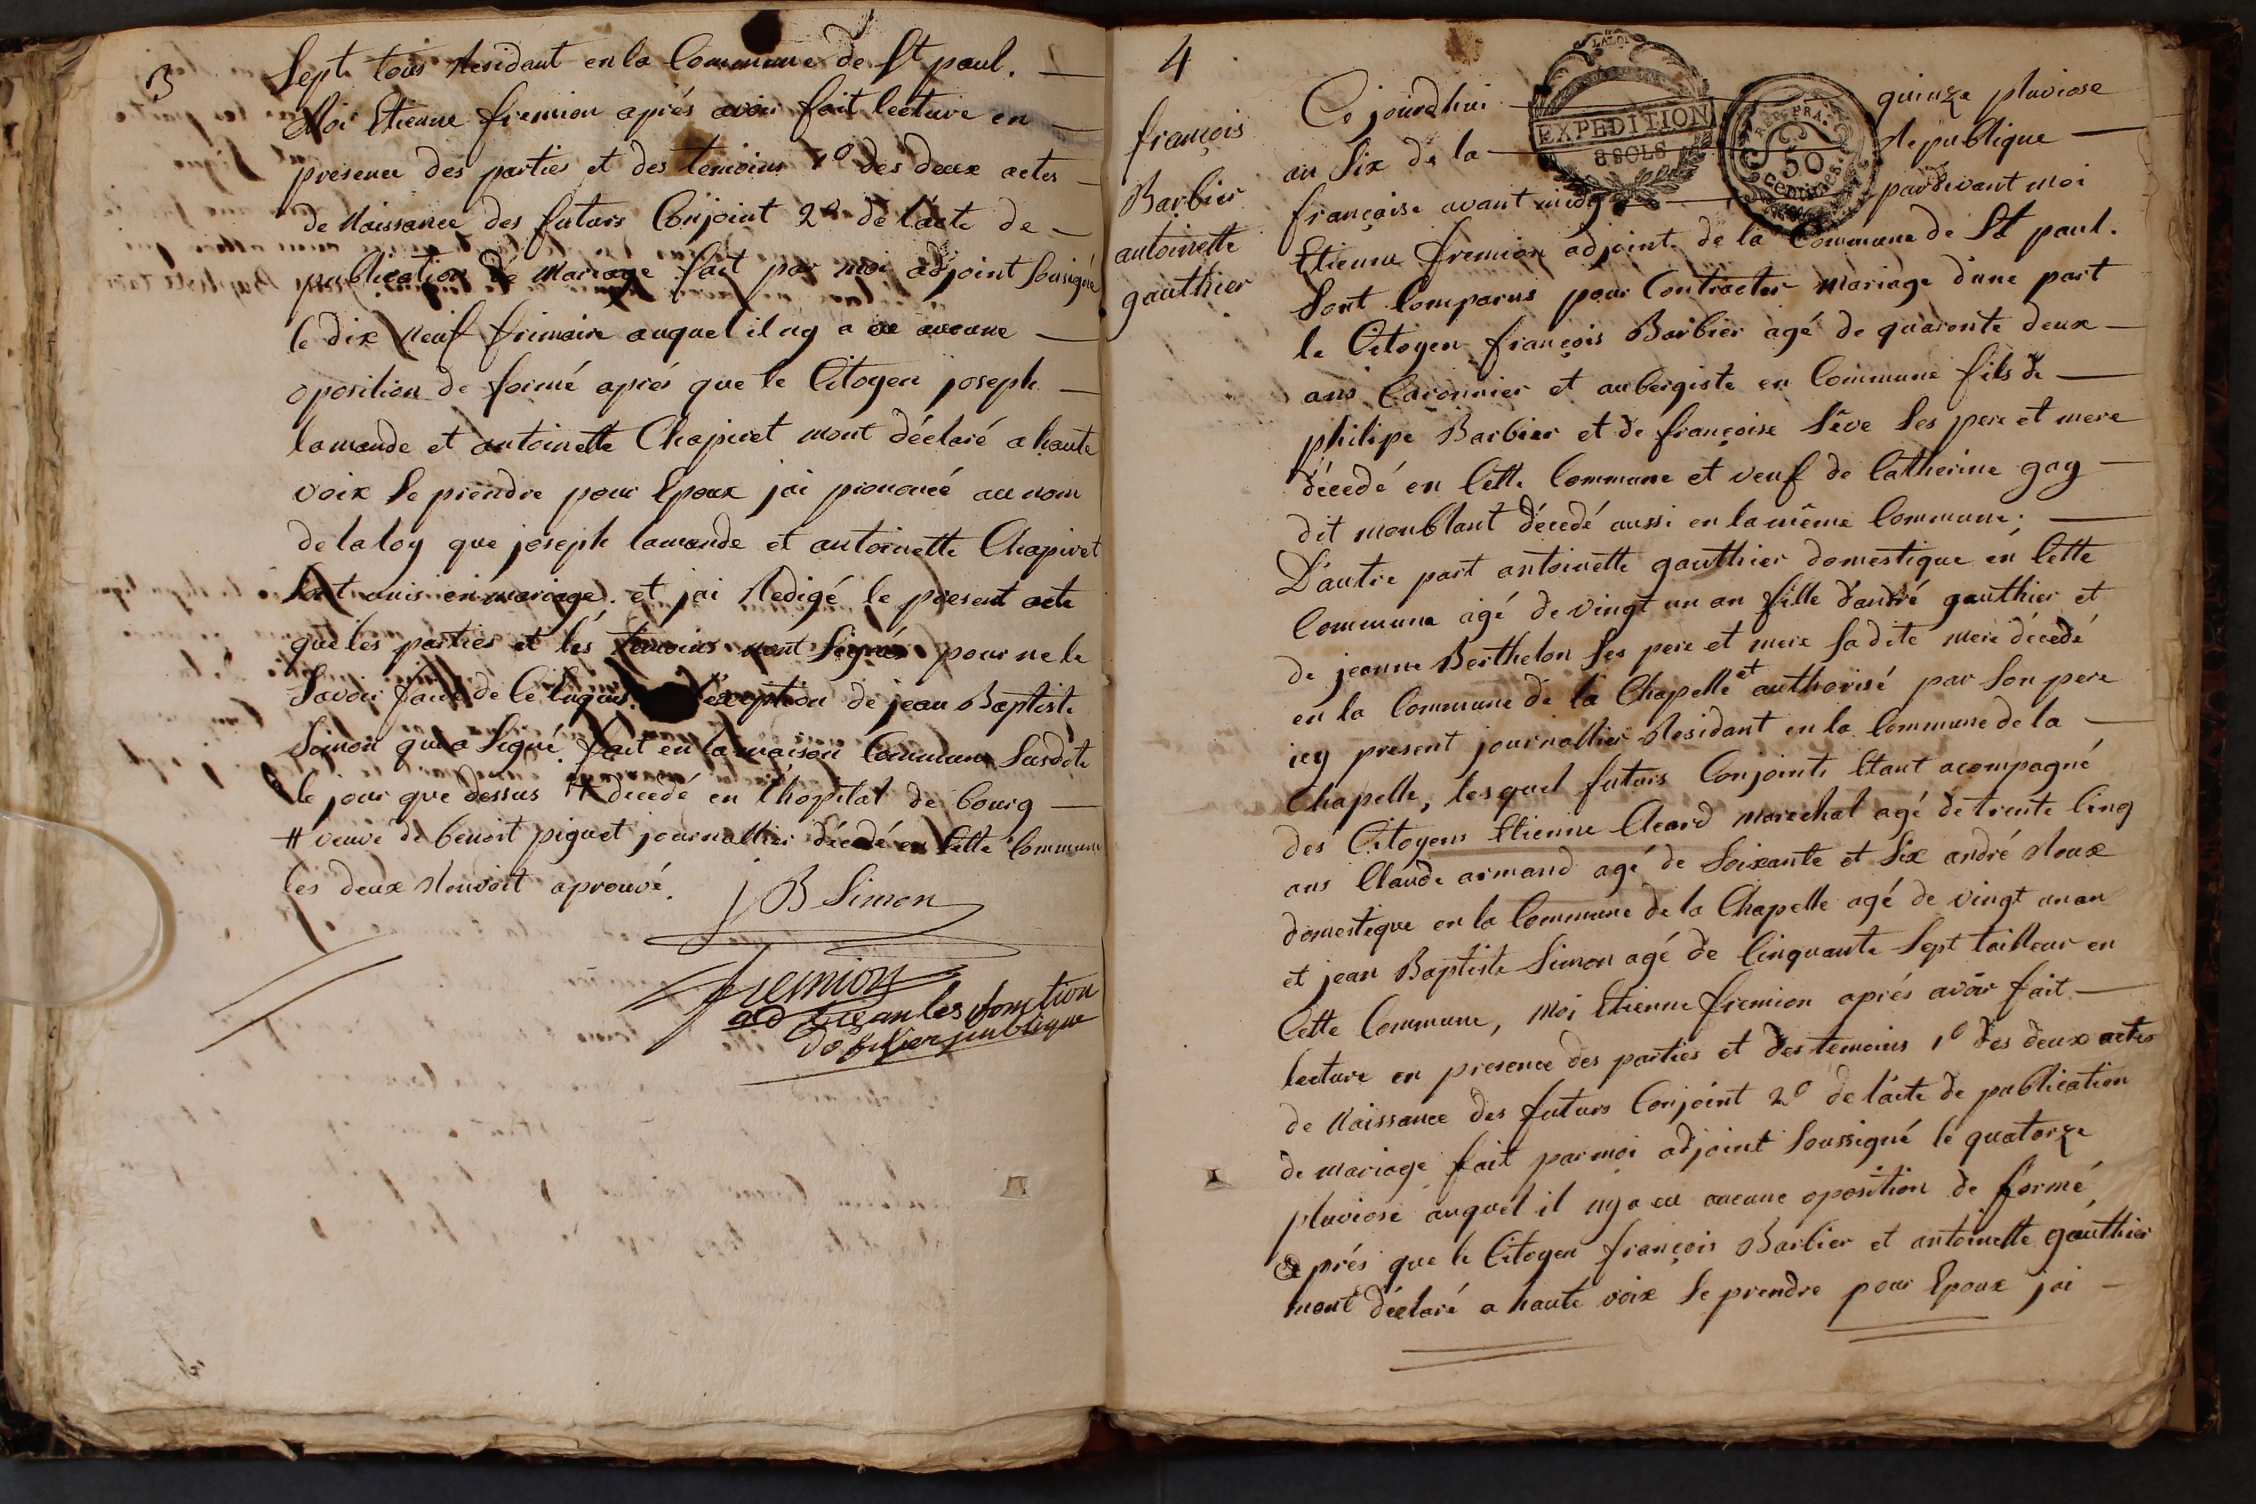 3
Sept tous Residant en la Commune de St paul.
Moi Etienne fremion aprés avoir fait lecture en
presence des parties et des temoins 1o des deux actes
de Naissance des futurs Conjoint 2o de l'acte de
publication de mariage fait par moi adjoint Sousigné
le dix Neuf frimaire auquel il ny a eu aucune
oposition de formé aprés que le Citoyen joseph
lamande et antoinette Chapivet mont déclaré a haute
voix Se prendre pour Epoux jai prononcé au nom
de la loy que joseph lamande et antoinette Chapivet
Sont unis en mariage. et jai Redigé le present acte
que les parties et les temoins nont Signés pour ne le
Savoir faire de Ce Enquis. exception de jean Baptiste
Simon qui a Signé. fait en la maison Commune Susdite
le jour que dessus # decedé en l'hopital de bourg
# veuve de benoit piguet journallier décedé en Cette Commune
les deux Renvoit aprouvé.
j B Simon
fremion
les fonction
d'officier publique
4
françois
Barbier
antoinette
gauthier
LA LOI
EXPEDITION
8 SOLS
REP. FRA.
50
centimes
Ce jourdhui quinze pluviose
an Six de la Republique
françoise avant midy pardevant moi
Etienne fremion adjoint de la Commune de St paul.
Sont Comparus pour Contracter mariage d'une part
le Citoyen françois Barbier agé de quarente deux
ans Caronnier et aubergiste en Commune fils de
philipe Barbier et de françoise Séve Ses pere et mere
décedé en Cette Commune et veuf de Catherine gay
dit monblant décedé aussi en la même Commune;
D'autre part antoinette gauthier domestique en Cette
Commune agé de vingt un an fille d'andré gauthier et
de jeanne Berthelon Ses pere et mere Sadite mere décedé
en la Commune de la Chapelle et authorisé par Son pere
icy present journallier Residant en la Commune de la
Chapelle, lesquel futurs Conjoints Etant acompagné
des Citoyens Etienne Acard marechal agé de trente Cinq
ans Claude armand agé de Soixante et Six andré Roux
domestique en la Commune de la Chapelle agé de vingt un an
et jean Baptiste Simon agé de Cinquante Sept tailleur en
Cette Commune, Moi Etienne fremion aprés avoir fait
lecture en presence des parties et des temoins 1o des deux actes
de Naissance des futurs Conjoint 2o de l'acte de publication
de mariage fait par moi adjoint Soussigné le quatorze
pluviose auquel il ny a eu aucune oposition de formé
aprés que le Citoyen françois Barbier et antoinette gauthier
mont déclaré a haute voix Se prendre pour Epoux jai